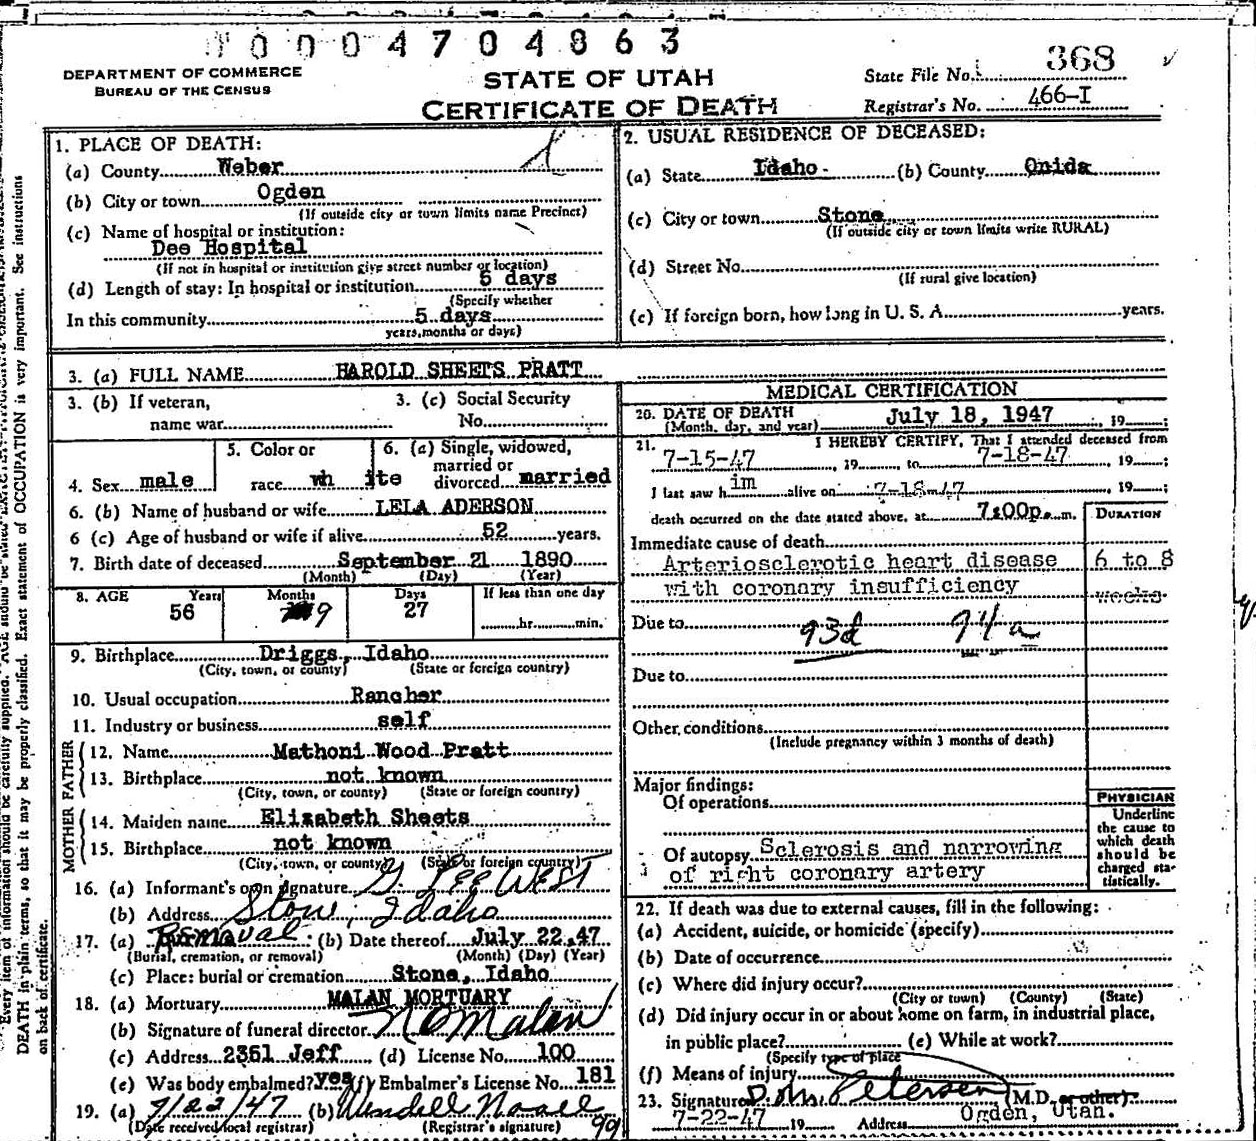 0004704863
DEPARTMENT OF COMMERCE
BUREAU OF THE CENSUS
STATE OF UTAH
CERTIFICATE OF DEATH
State File No. 368
Registrar's No. 466-I
1. PLACE OF DEATH:
(a) County Weber
(b) City or town Ogden
(If outside city or town limits name Precinct)
(c) Name of hospital or institution:
Dee Hospital
(If not in hospital or institution give street number or location)
(d) Length of stay: In hospital or institution 5 days
(Specify whether
In this community 5 days
years, months or days)
2. USUAL RESIDENCE OF DECEASED:
(a) State Idaho (b) County Onida
(c) City or town Stone
(If outside city or town limits write RURAL)
(d) Street No.
(If rural give location)
(e) If foreign born, how long in U. S. A. years.
3. (a) FULL NAME HAROLD SHEETS PRATT
3. (b) If veteran,
name war
3. (c) Social Security
No.
4. Sex male
5. Color or
race wh ite
6. (a) Single, widowed,
married or
divorced married
6. (b) Name of husband or wife LELA ADERSON
6 (c) Age of husband or wife if alive 52 years.
7. Birth date of deceased September 21 1890
(Month) (Day) (Year)
8. AGE Years Months Days If less than one day
56 9 27 hr. min.
9. Birthplace Driggs, Idaho
(City, town, or county) (State or foreign country)
10. Usual occupation Rancher
11. Industry or business self
FATHER
12. Name Mathoni Wood Pratt
13. Birthplace not known
(City, town, or county) (State or foreign country)
MOTHER
14. Maiden name Elizabeth Sheets
15. Birthplace not known
(City, town, or county) (State or foreign country)
16. (a) Informant's own signature G. Lee West
(b) Address Stone, Idaho
17. (a) Removal (b) Date thereof July 22, 47
(Burial, cremation, or removal) (Month) (Day) (Year)
(c) Place: burial or cremation Stone, Idaho
18. (a) Mortuary MALAN MORTUARY
(b) Signature of funeral director N O Malan
(c) Address 2351 Jeff (d) License No. 100
(e) Was body embalmed? yes (f) Embalmer's License No. 181
19. (a) 7/22/47 (b) Wendell
(Date received local registrar) (Registrar's signature) 99
MEDICAL CERTIFICATION
20. DATE OF DEATH July 18, 1947, 19
(Month, day, and year)
21. I HEREBY CERTIFY, That I attended deceased from
7-15-47, 19 to 7-18-47, 19 ;
I last saw him alive on 7-18-47, 19 ;
death occurred on the date stated above, at 7:00p. m.
DURATION
Immediate cause of death
Arteriosclerotic heart disease 6 to 8
with coronary insufficiency weeks
Due to 93d 94a
Due to
Other conditions
(Include pregnancy within 3 months of death)
Major findings:
Of operations
Of autopsy Sclerosis and narrowing
of right coronary artery
PHYSICIAN
Underline
the cause to
which death
should be
charged sta-
tistically.
22. If death was due to external causes, fill in the following:
(a) Accident, suicide, or homicide (specify)
(b) Date of occurrence
(c) Where did injury occur?
(City or town) (County) (State)
(d) Did injury occur in or about home on farm, in industrial place,
in public place? (e) While at work?
(Specify type of place
(f) Means of injury
23. Signature Petersen (M.D. or other)
7-22-47 19 Address Ogden, Utah.
Every item of information should be carefully supplied. AGE should be stated EXACTLY. PHYSICIANS should state CAUSE OF
DEATH in plain terms, so that it may be properly classified. Exact statement of OCCUPATION is very important. See instructions
on back of certificate.